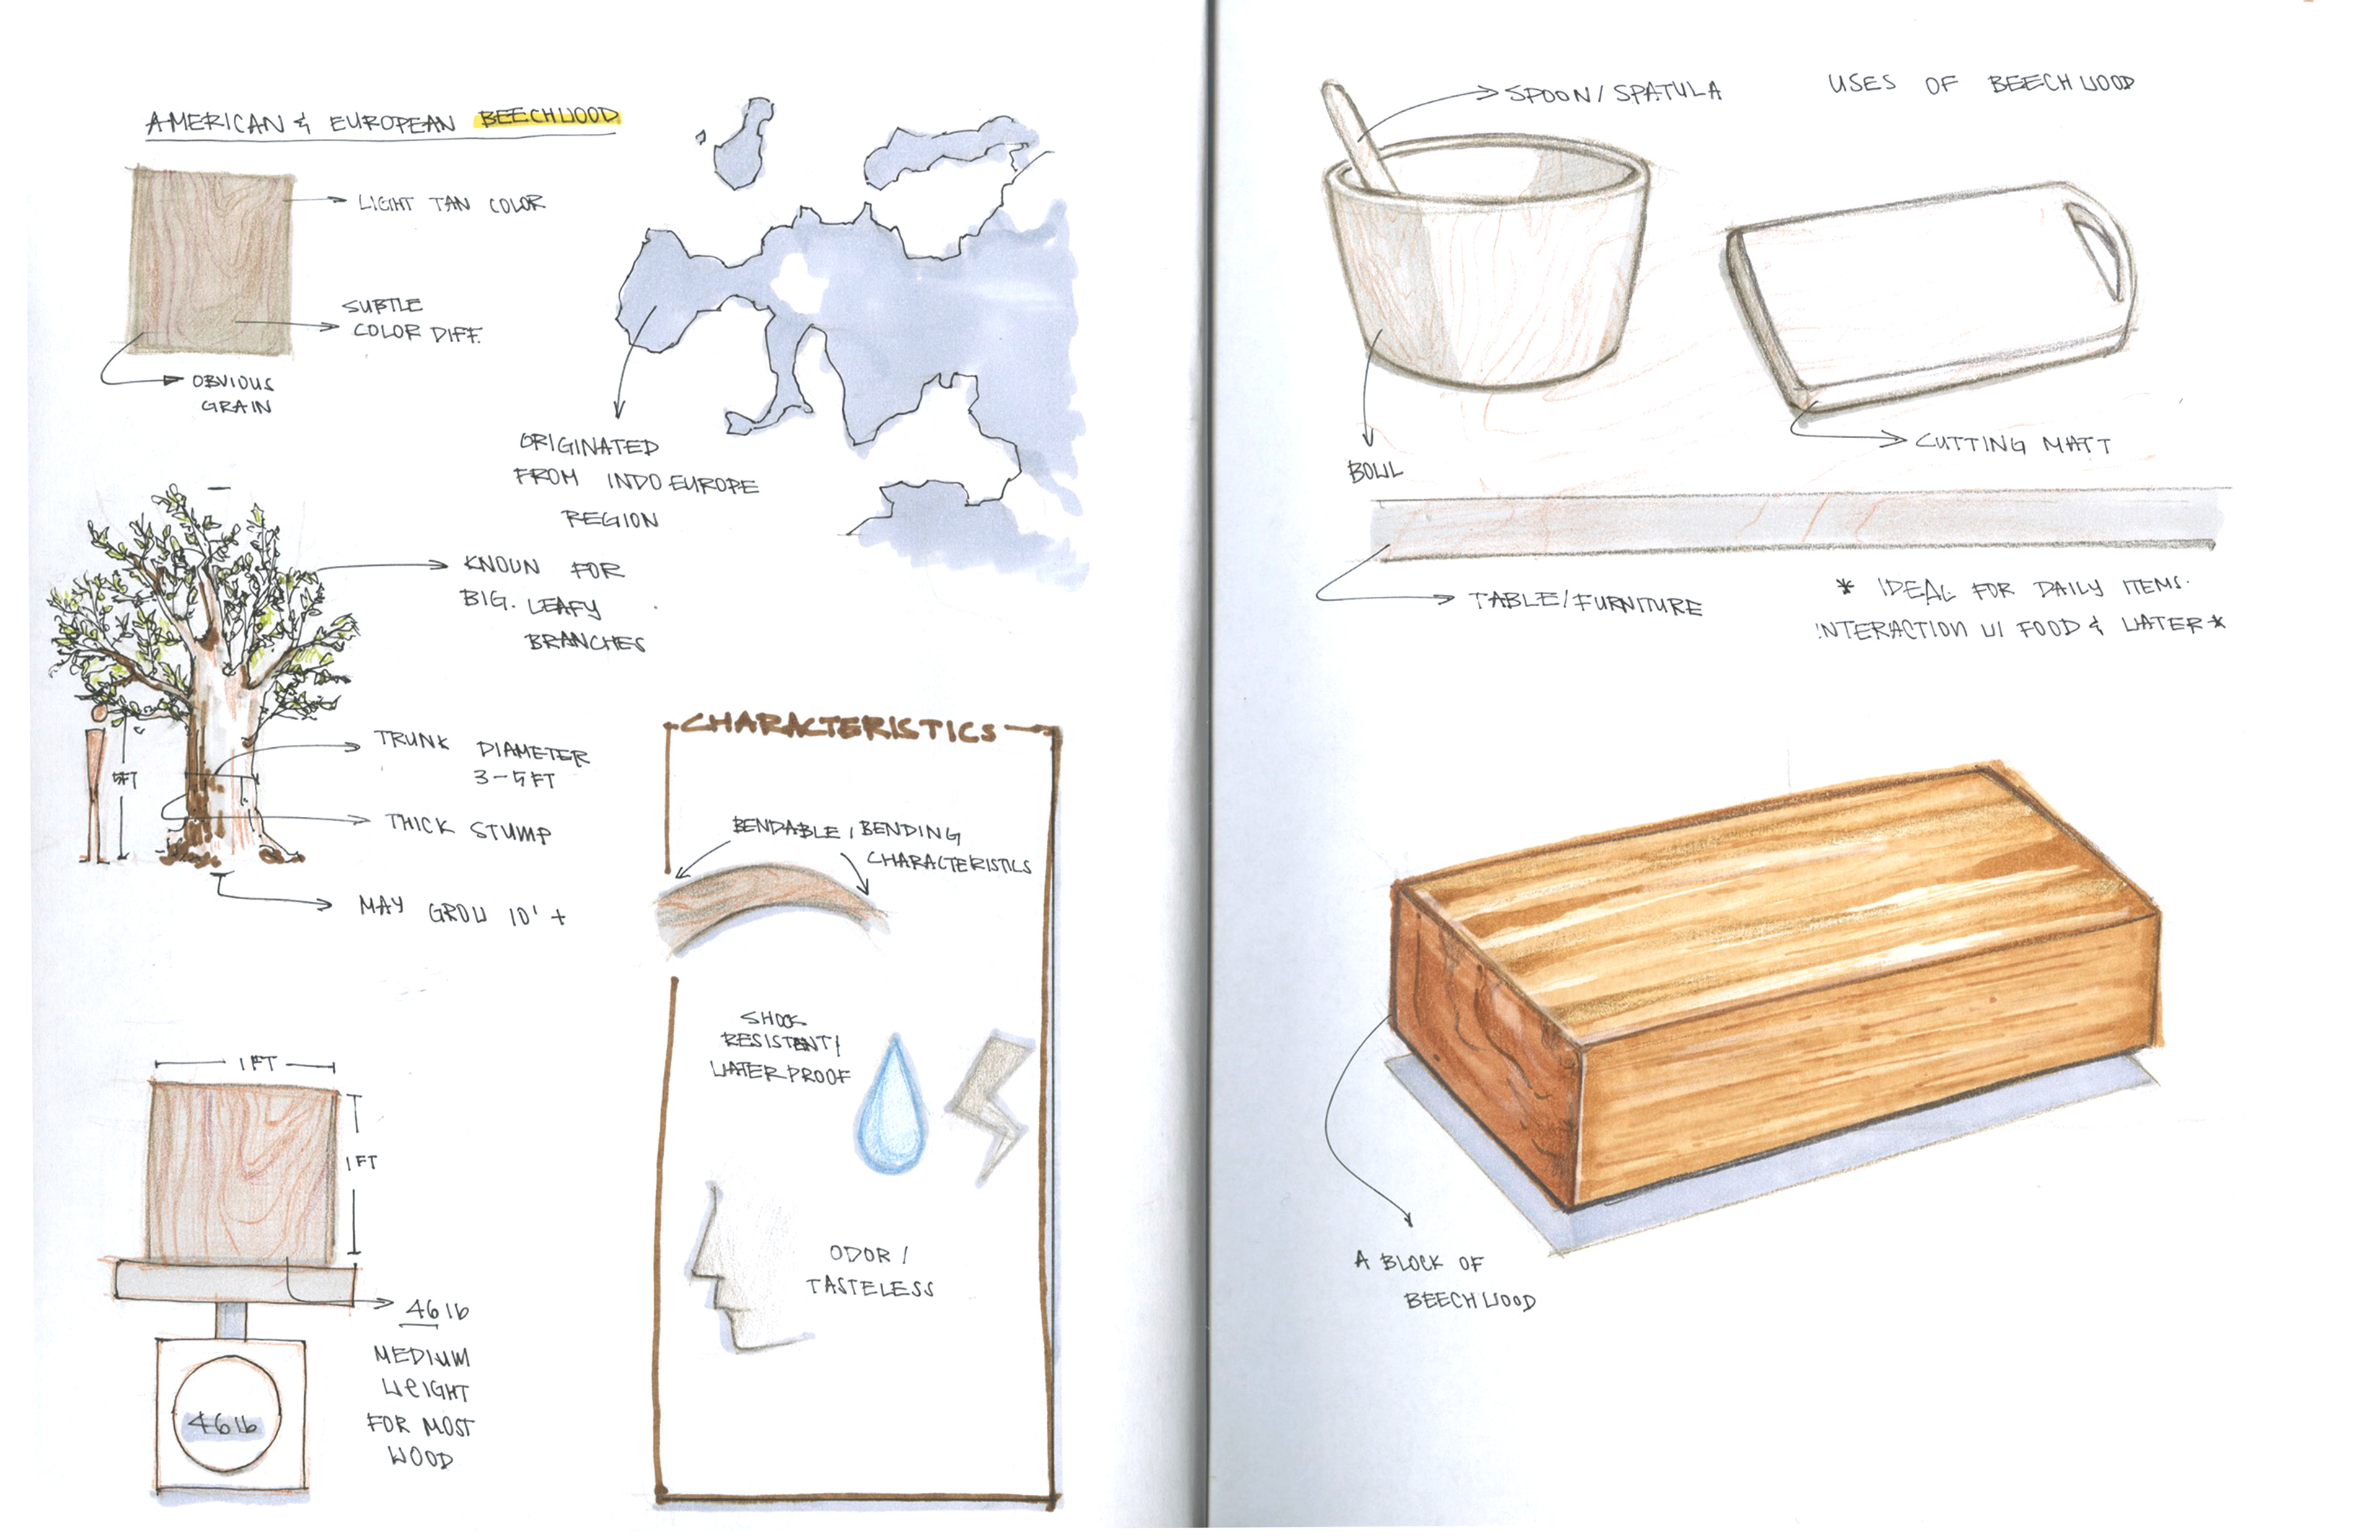 AMERICAN & EUROPEAN BEECHWOOD
LIGHT TAN COLOR
SUBTLE
COLOR DIFF.
OBVIOUS
GRAIN
ORIGINATED
FROM INDO EUROPE
REGION
KNOWN FOR
BIG. LEAFY
BRANCHES
5FT
TRUNK DIAMETER
3-5FT
THICK STUMP
MAY GROW 10' +
1 FT
1 FT
46 lb
MEDIUM
WEIGHT
FOR MOST
WOOD
46 lb
CHARACTERISTICS
BENDABLE / BENDING
CHARACTERISTICS
SHOCK
RESISTENT /
WATER PROOF
ODOR /
TASTELESS
USES OF BEECHWOOD
SPOON / SPATULA
BOWL
CUTTING MATT
TABLE / FURNITURE
* IDEAL FOR DAILY ITEMS.
INTERACTION W/ FOOD & WATER *
A BLOCK OF
BEECHWOOD